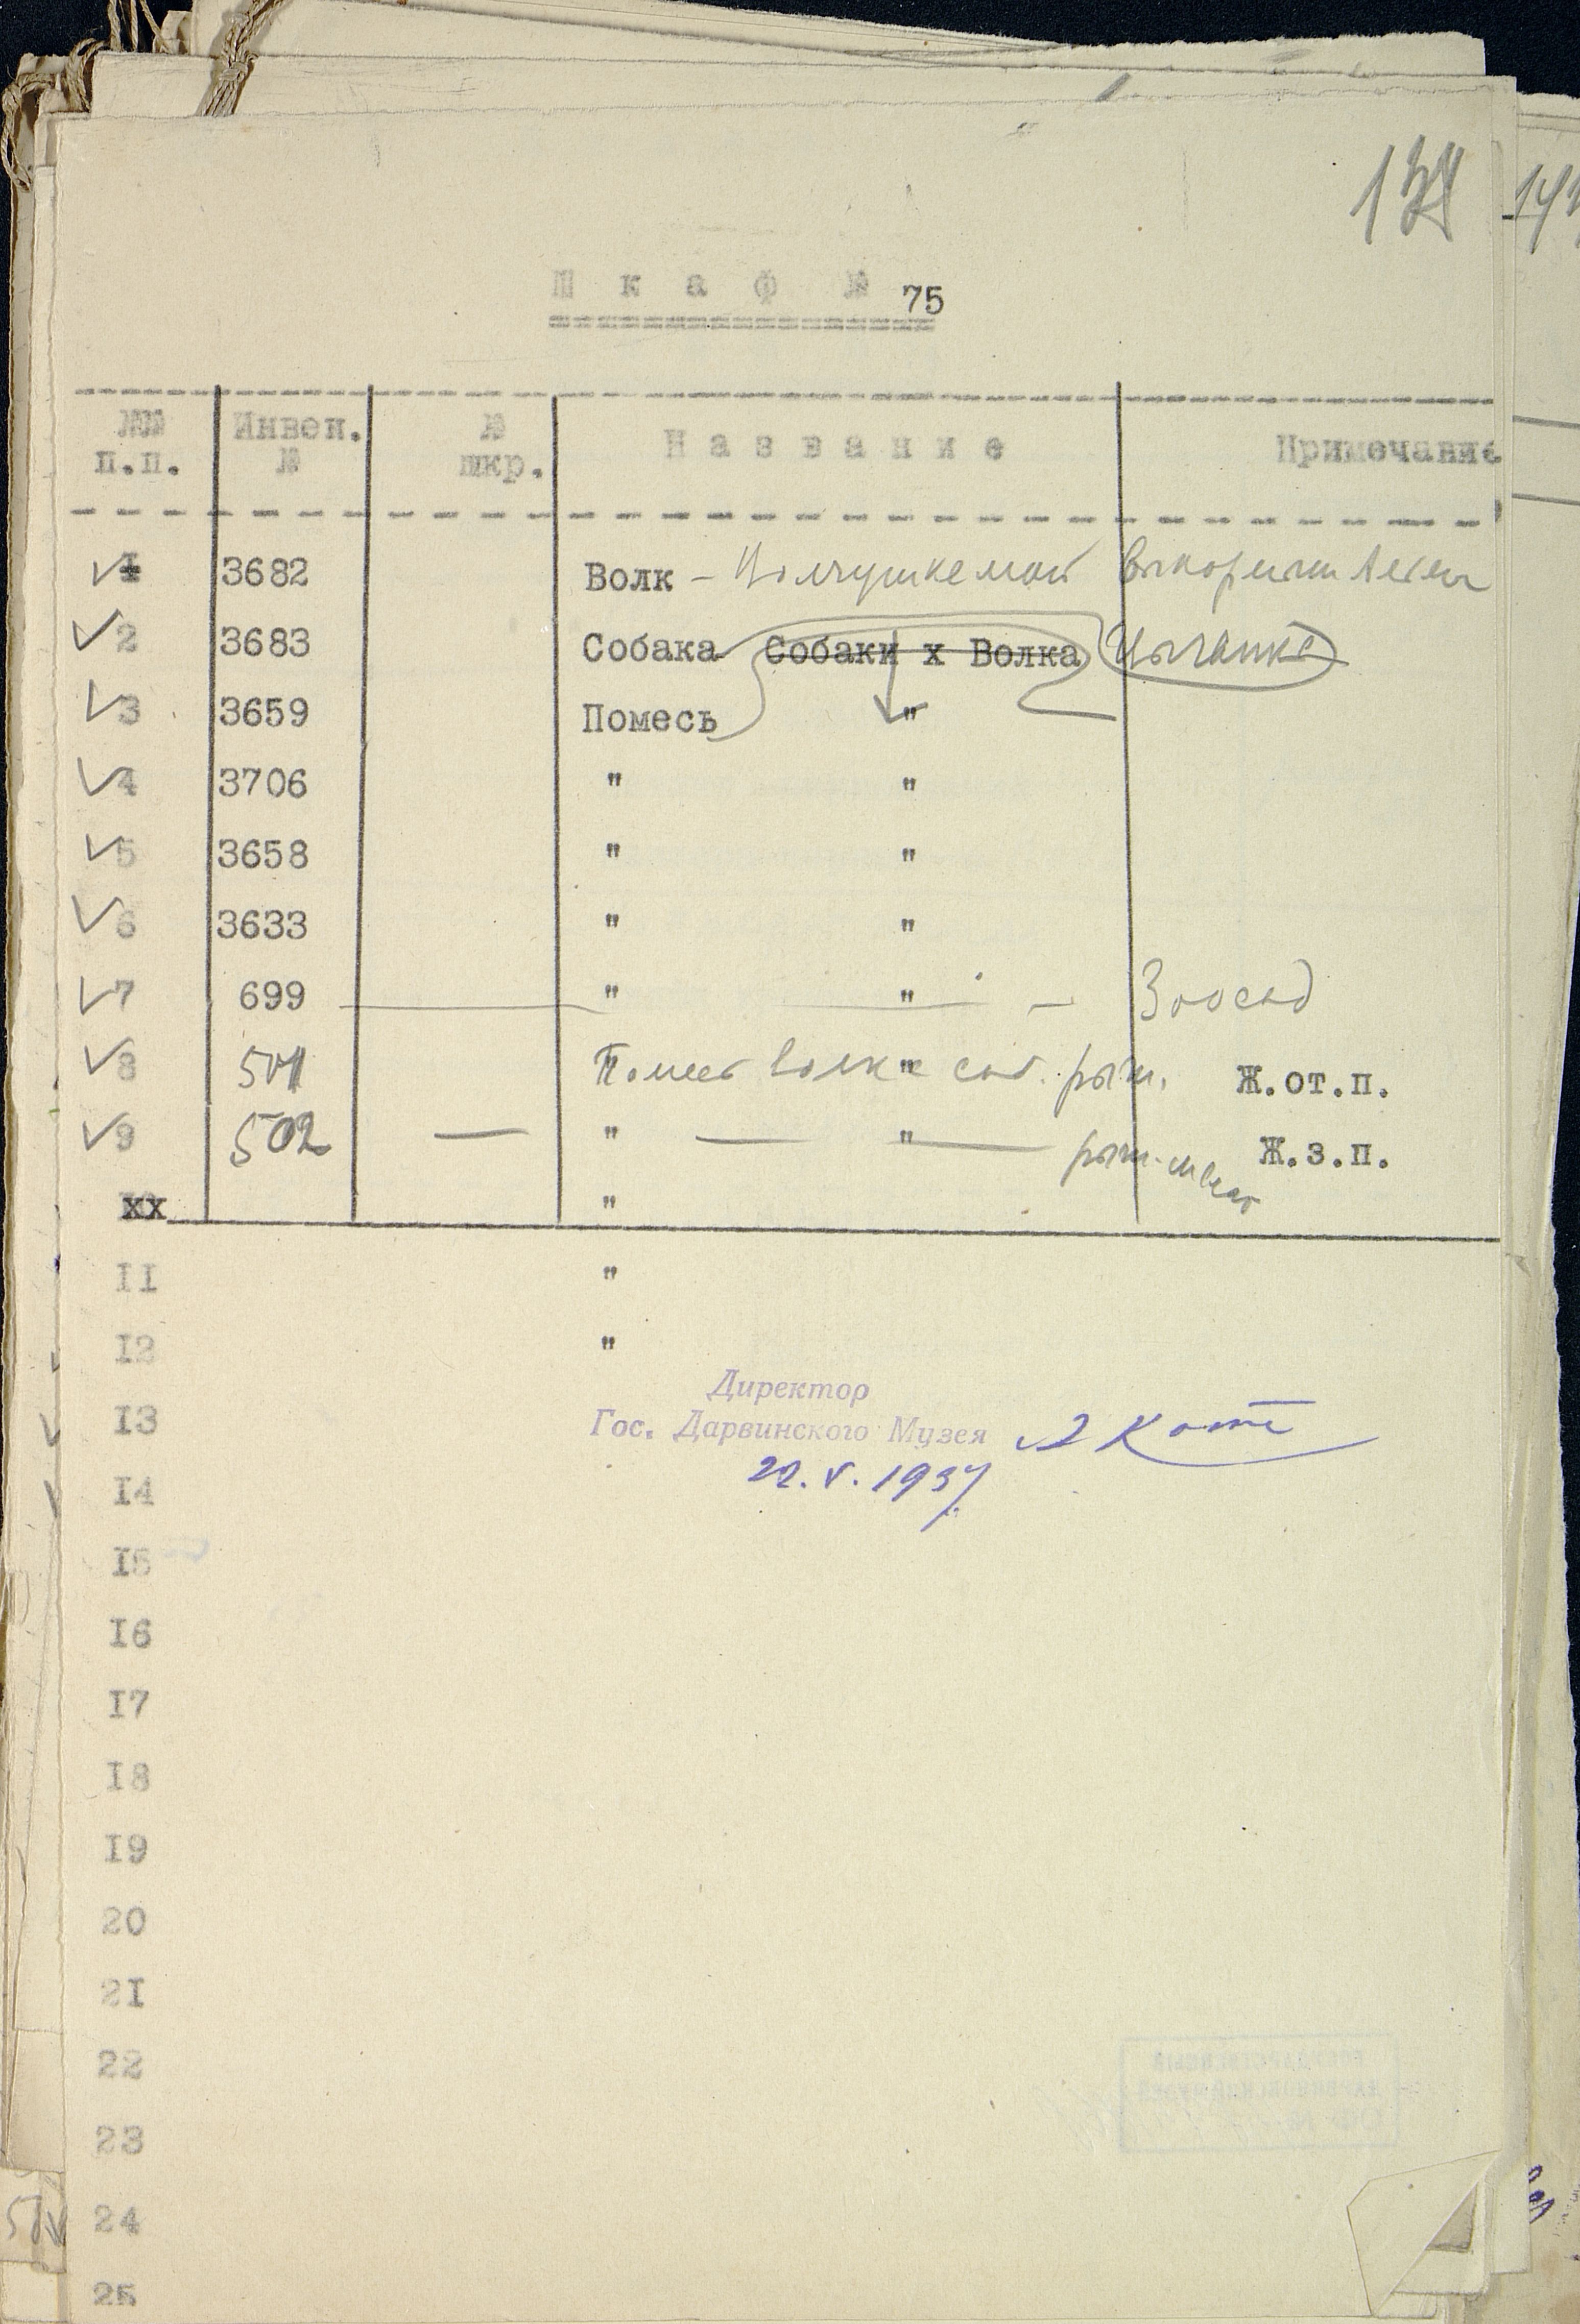 Шкаф № 75
№№ п.п. Инвен. № № шкр. Название Примечание
1 3682 Волк –
2 3683 Собака Собаки х Волка Цыганка
3 3659 Помесь "
4 3706 " "
5 3658 " "
6 3633 " "
7 699 " " – Зоосад
8 501 Помесь волка " соб. рыж. Ж.от.п.
9 502 — " — " — рыж. Ж.з.п.
xx "
II "
I2 "
Директор
I3 Гос. Дарвинского Музея А Котс
22.V.1937
I4
I5
I6
I7
I8
I9
20
2I
22
23
24
25